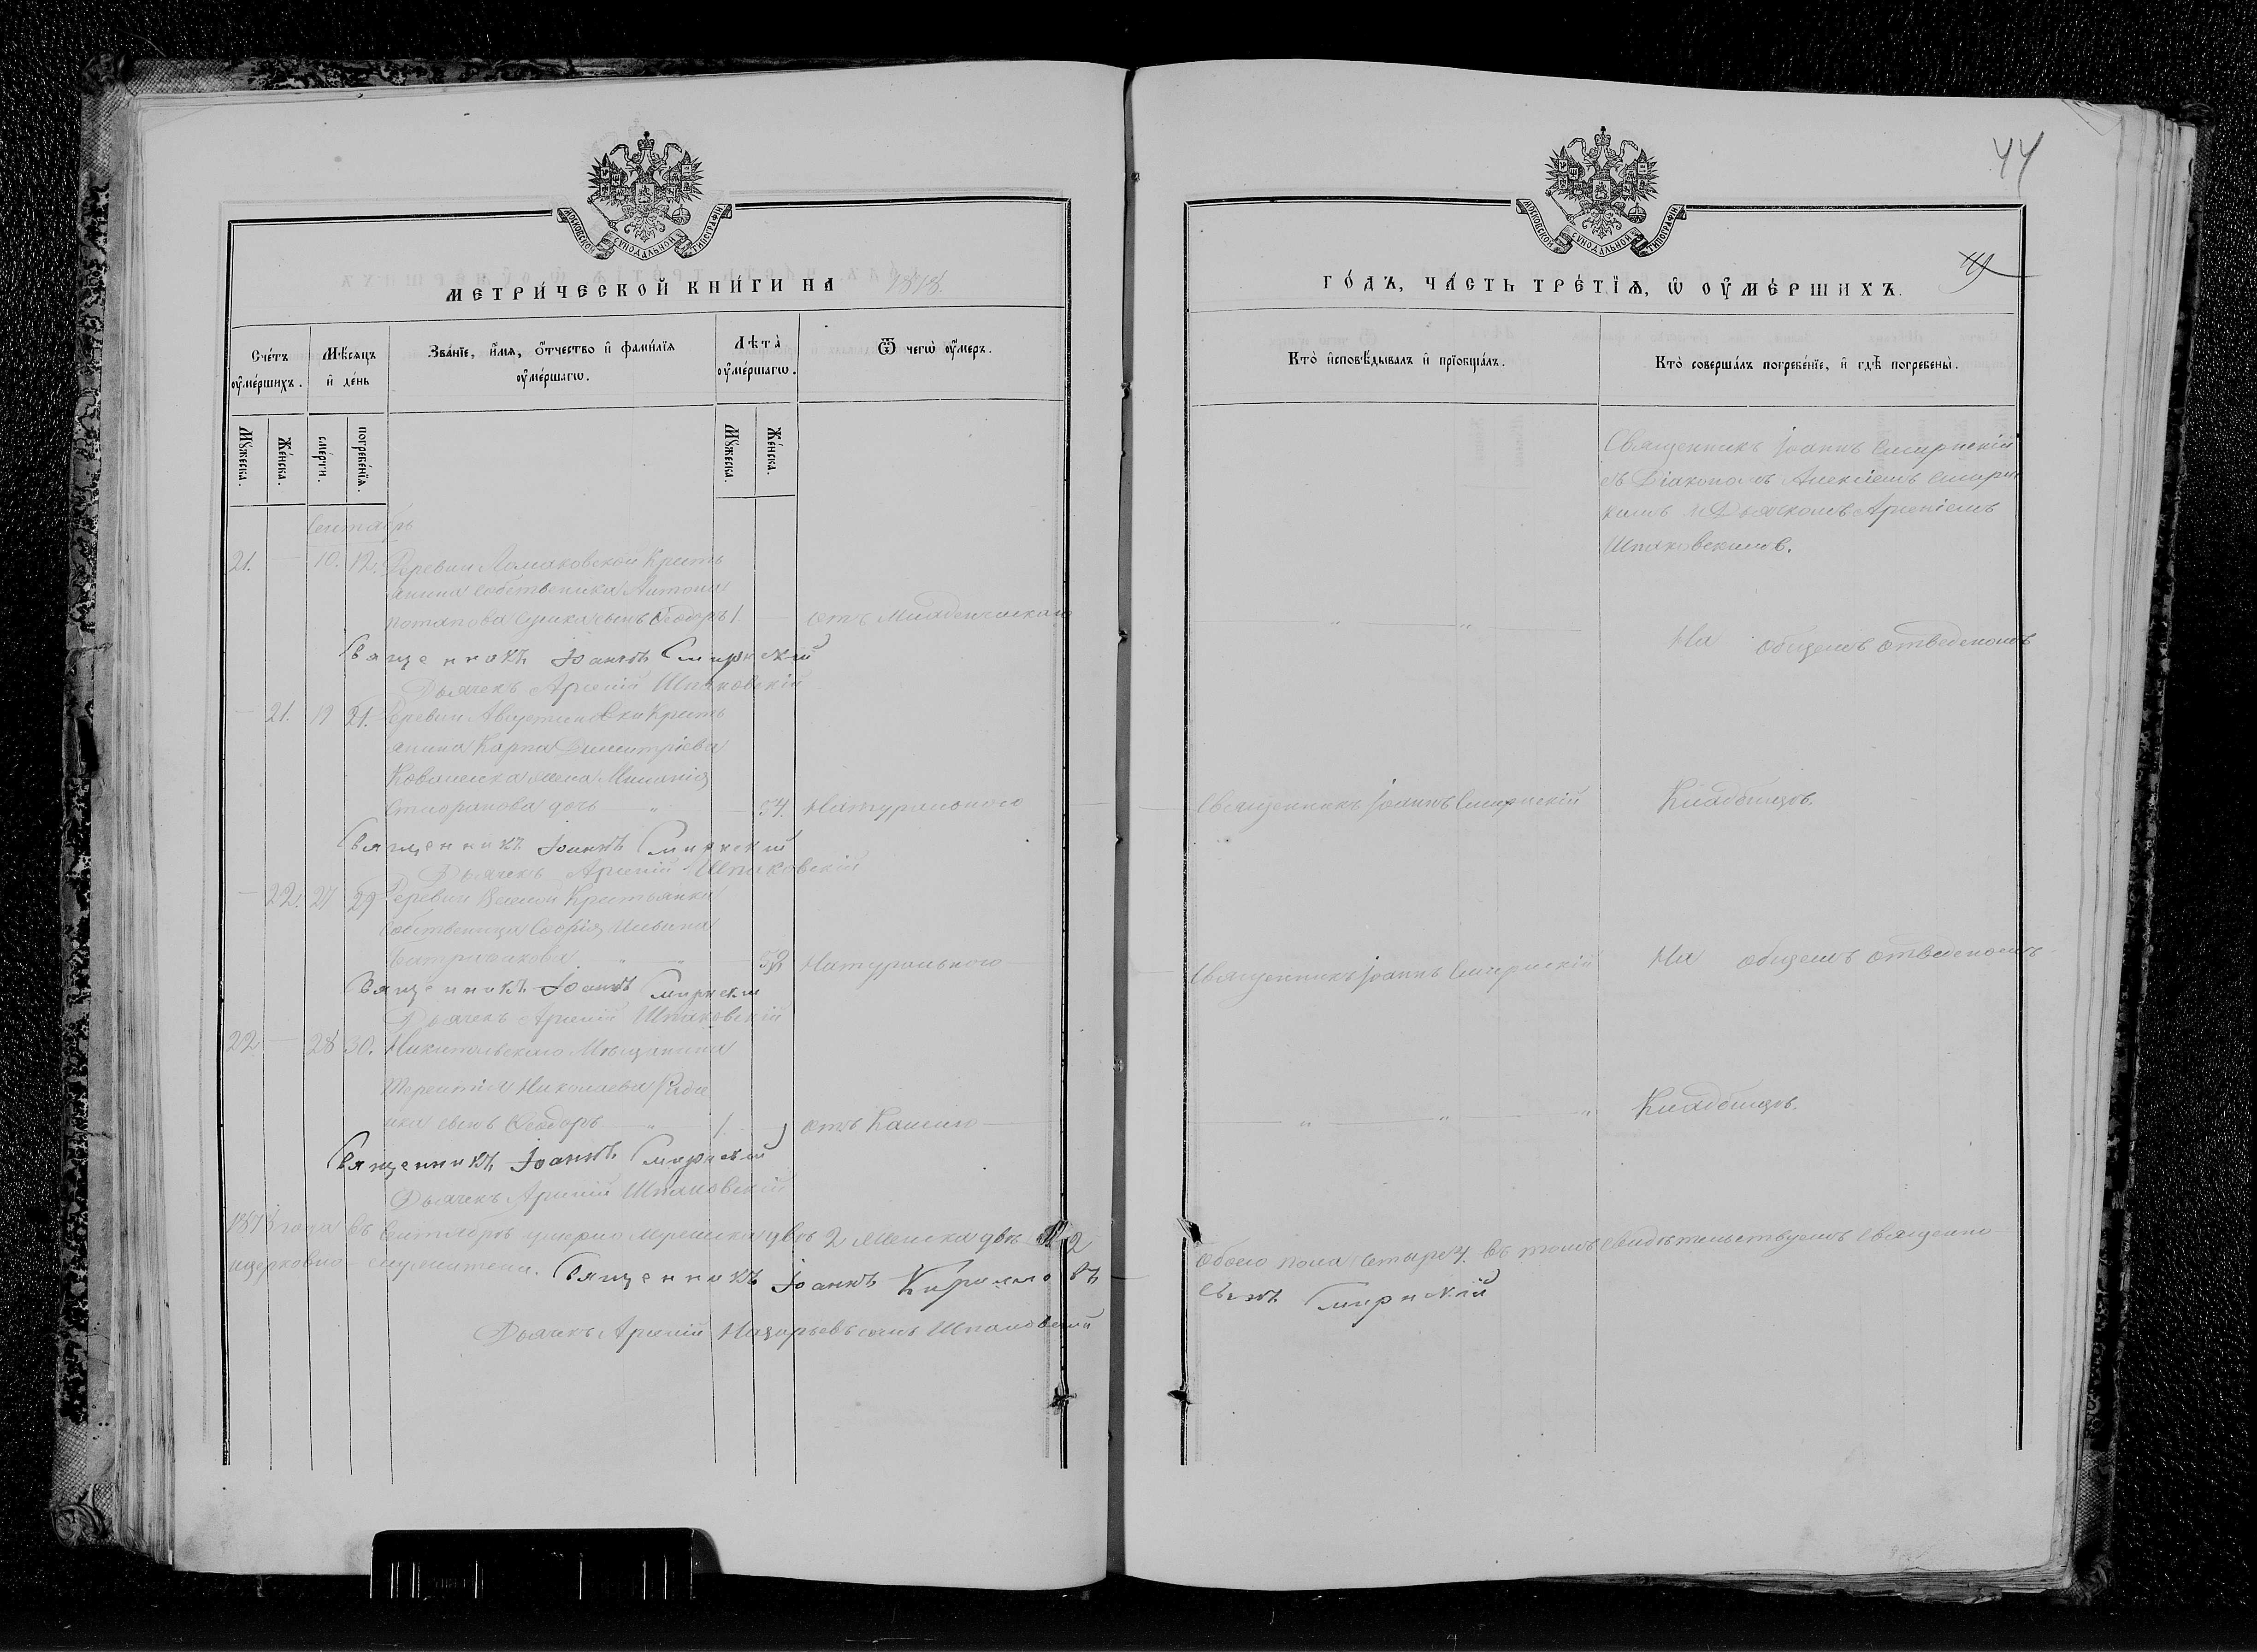 44
МОСКОВСКОЙ СУНОДАЛЬНОЙ ТИПОГРАФІИ
МЕТРИ́ЧЕСКОЙ КНИ́ГИ НА 1878
Сче́тъ ᲂу҆ме́ршихъ.
Мѣ́сяцъ и҆ де́нь
Зва́нїе, и҆́мѧ, ѻ҆́тчество и҆ фами́лїѧ ᲂу҆ме́ршагѡ.
Лѣта̀ ᲂу҆ме́ршагѡ.
Ѿ чегѡ̀ ᲂу҆́меръ.
Мꙋ́жеска.
Же́нска.
сме́рти.
погребе́нїѧ.
Мꙋ́жеска.
Же́нска.
Сентябрь
21. — 10. 12. Деревни Ломаковской Кресть
янина собственика Антона
Потапова сынъ Ѳеодоръ 1. — отъ Младенческаго
Священникъ Іоаннъ Смирнскій
Дьячекъ Арсеній Шпаковскій
— 21. 19 21. Деревни Августиновки Кресть
янина Карпа Димитріева
жена
дочь — " — 54. Натуральною
Священникъ Іоаннъ Смирнскій
Дьячекъ Арсеній Шпаковскій
— 22. 27 29 Деревни Крестьянка
собственица Софія Ильина
— " — " — 53 Натуральною
Священникъ Іоаннъ Смирнскій
Дьячекъ Арсеній Шпаковскій
22 — 28 30. Никитовскаго Мѣщанина
Терентія Николаева
сынъ Ѳеодоръ — " — 1. отъ Кашлю
Священникъ Іоаннъ Смирнскій
Дьячекъ Арсеній Шпаковскій
1878 года въ Сентябрѣ умерло мужеска двѣ 2 женска двѣ 2
ицерковно-служители. Священникъ Іоаннъ Кирилловъ
Дьячекъ Арсеній Назарьевъ сынъ Шпаковскій
МОСКОВСКОЙ СУНОДАЛЬНОЙ ТИПОГРАФІИ
ГО́ДЪ, ЧА́СТЬ ТРЕ́ТЇѦ, Ѡ ОУ҆МЕ́РШИХЪ.
Кто̀ и҆сповѣ́дывалъ и҆ прїѻбща́лъ.
Кто̀ соверша́лъ погребе́нїе, и҆ гдѣ̀ погребены̀.
Священникъ Іоаннъ Смирнскій
съ Діакономъ Алексіемъ Смирн
скимъ и Дьячкомъ Арсеніемъ
Шпаковскимъ.
" — "
На общемъ отведеномъ
Священникъ Іоаннъ Смирнскій
Кладбищѣ.
Священникъ Іоаннъ Смирнскій
На общемъ отведеномъ
" — " — "
Кладбищѣ.
Обоего пола четыре 4. въ томъ свидѣтельствуемъ священно
Сынъ Смирнскій